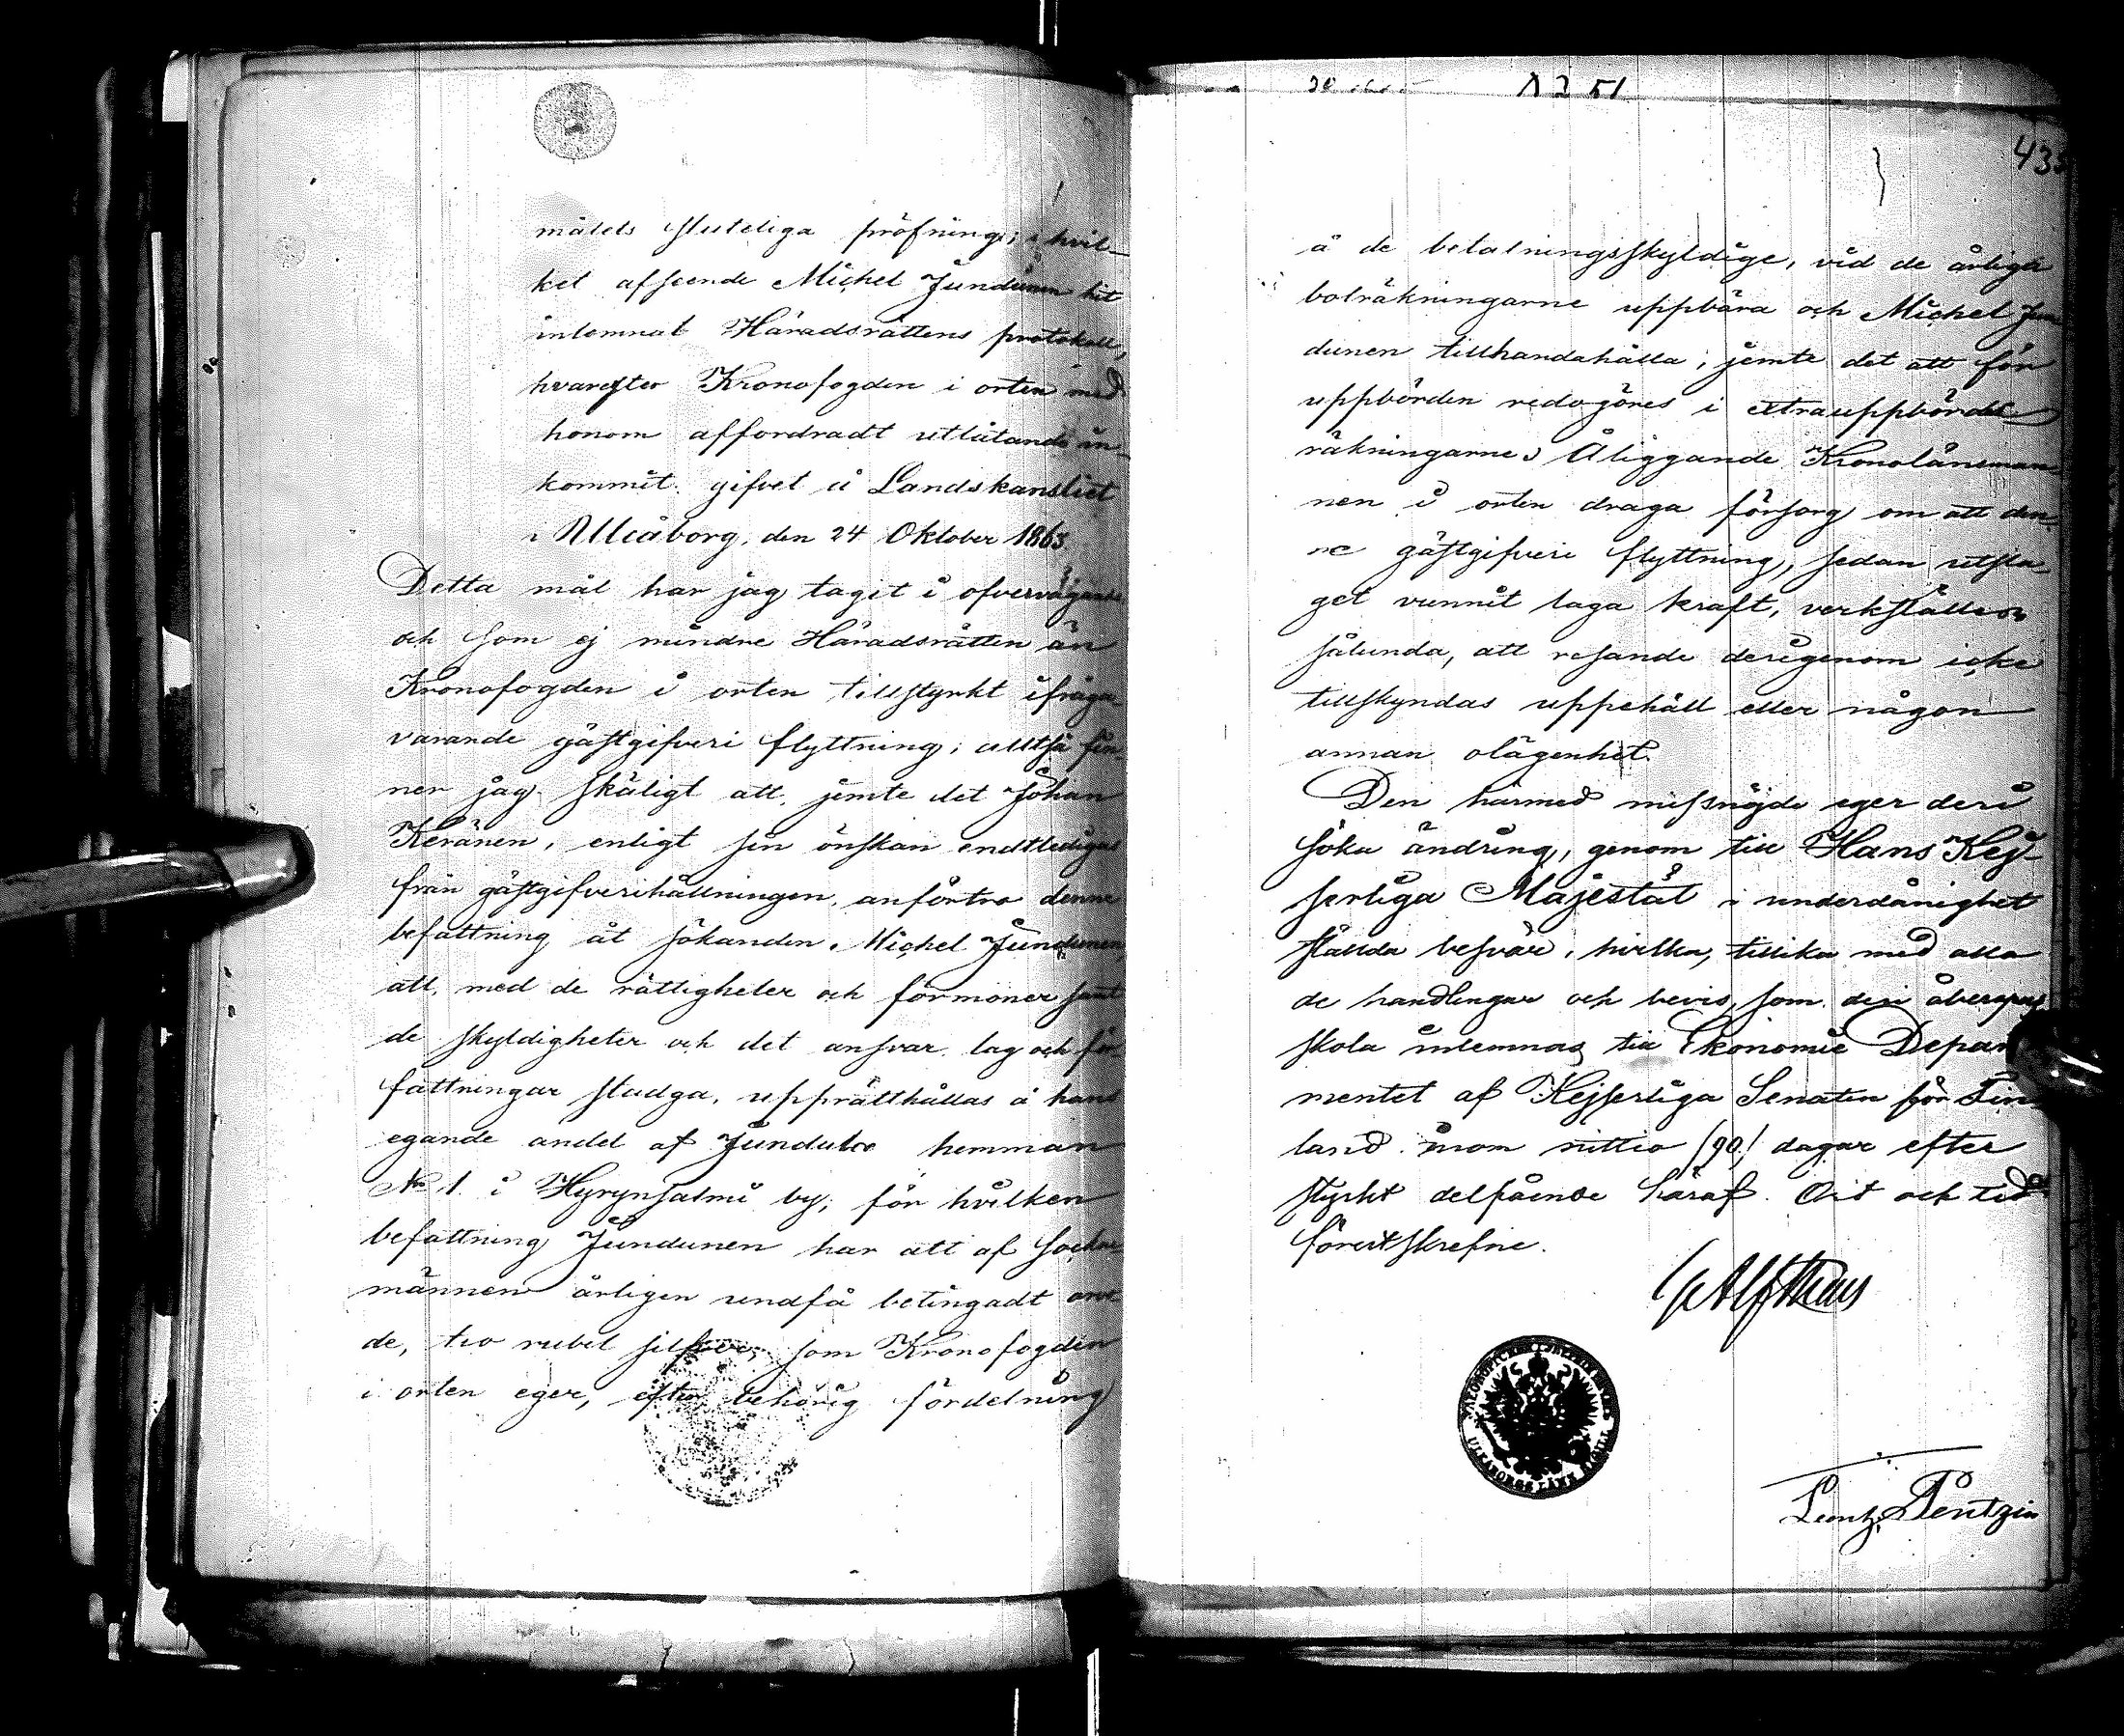 målets sluteliga pröfning; i hvil-
ket afseende Michel Jundunen hit
inlemnat Häradsrättens protokoll,
hvarefter Kronofogden i orten med
honom affordradt utlåtande in-
kommit. gifvet å Landskansliet
i Uleåborg, den 24 Oktober 1865.
Detta mål har jag tagit i öfvervägande
och som ej mindre Häradsrätten än
Kronofogden i orten tillstyrkt ifråga-
varande gästgifveri flyttning; alltså fin-
ner jag skäligt att, jemte det Johan
Keränen, enligt sin önskan endtledigas
från gästgifverihållningen, anförtro denne
befattning åt sökanden, Michel Jundunen,
att, med de rättigheter och förmoner samt
de skyldigheter och det ansvar lag och för-
fattningar stadga, upprätthållas å hans
egande andel af Jundula hemman
No 1. i Hyrynsalmi by; för hvilken
befattning Jundunen har att af socke-
männen årligen undfå betingadt arvo-
de, tio rubel silfver, som Kronofogden
i orten eger, efter behörig fördelning
435
å de betalningsskyldige, vid de årliga
bolräkningarne uppbära och Michel Jun-
dunen tillhandahålla; jemte det att för
uppbörden redogöres i extrauppbörds-
räkningarne. Åliggande Kronolänsman-
nen i orten draga försorg om att den-
ne gästgifveri flyttning, sedan utsla-
get vunnit laga kraft, verkställes
sålunda, att resande derigenom icke
tillskyndas uppehåll eller någon
annan olägenhet.
Den härmed missnöjde eger deri
söka ändring, genom till Hans Kej-
serliga Majestät i underdånighet
ställda besvär, hvilka, tillika med alla
de handlingar och bevis, som deri åberopas
skola inlemnas till Ekonomie Depart-
mentet af Kejserliga Senaten för Fin-
land inom nittio /90/ dagar efter
styrkt delfående häraf. Ort och tid
förutskrefne.
G. Alfthan
ULEÅBORGS LÄNS SIGILL